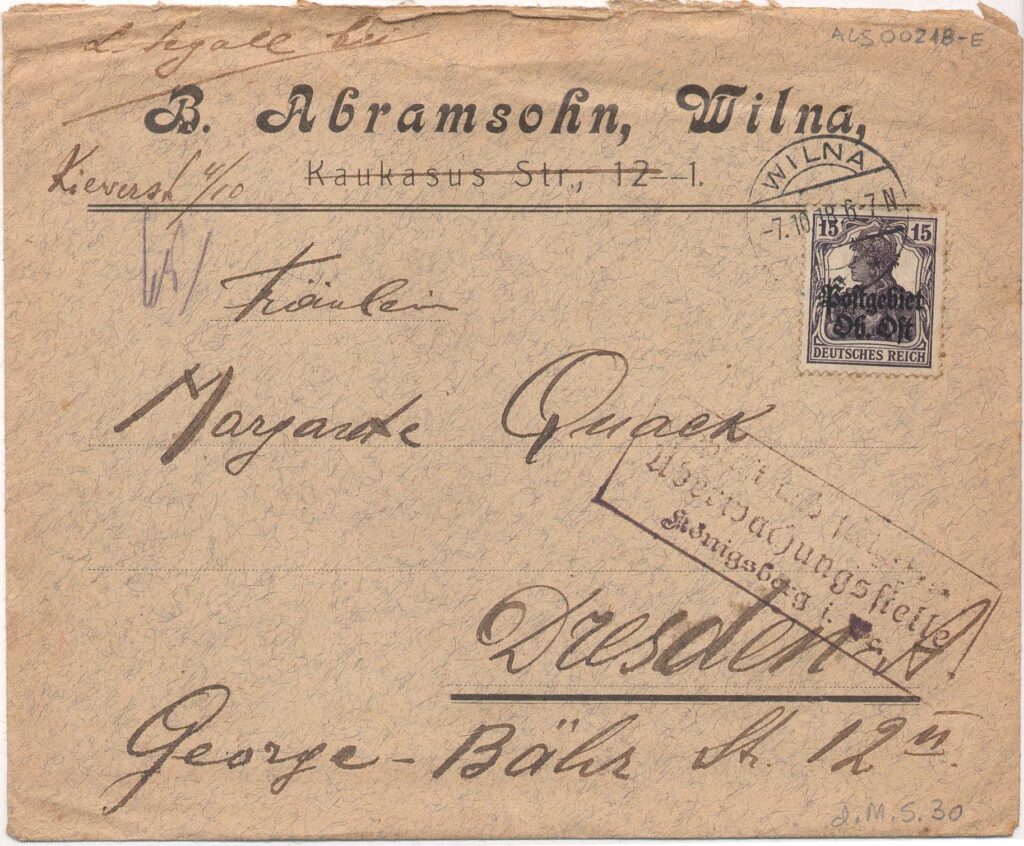 L. Segall bei
ALS00218-E
B. Abramsohn, Wilna,
Kieverst 4/10
Kaukasus Str., 12-1.
WILNA
-7.10.18.6-7N
15 15
Postgebiet
Ob. Ost
DEUTSCHES REICH
Fräulein
Margarete Quack
Überwachungsstelle
Königsberg i. Pr.
Dresden A
George-Bähr St. 12 II.